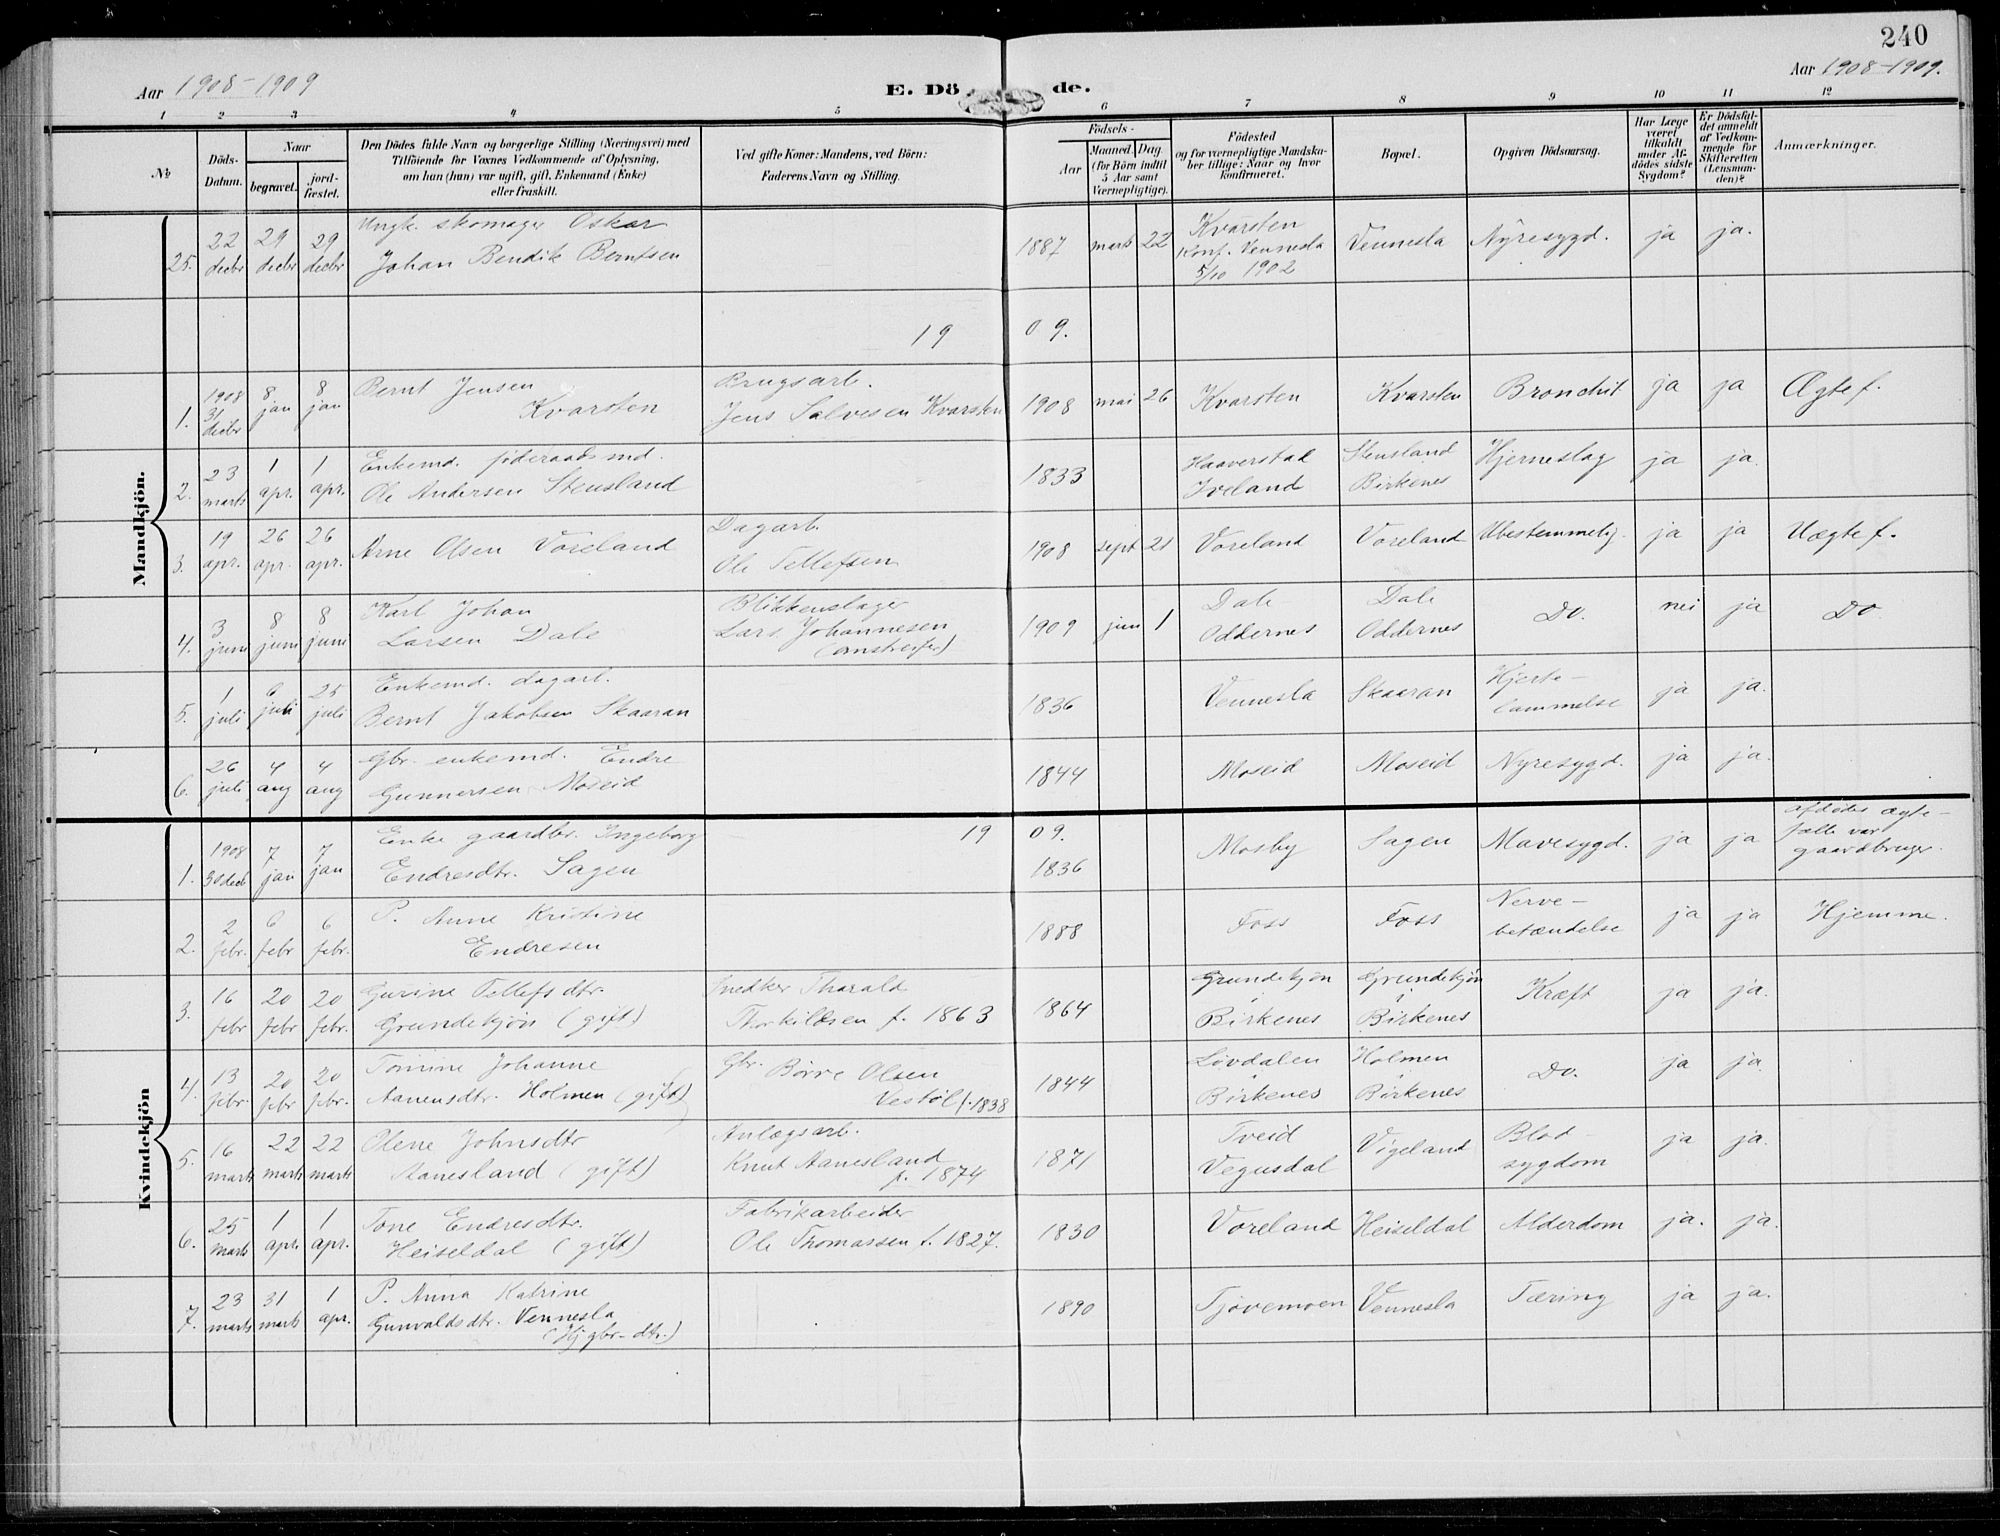 240
Aar 1908-1909
E. Dö de.
Aar 1908-1909.
1 2 3 4 5 6 7 8 9 10 11 12
№
Döds-Datum.
Naar
begravet.
jord-fæstet.
Den Dödes fulde Navn og borgerlige Stilling (Næringsvei) med
Tilföiende for Voxnes Vedkommende af Oplysning,
om han (hun) var ugift, gift, Enkemand (Enke)
eller fraskilt.
Ved gifte Koner: Mandens, ved Börn:
Faderens Navn og Stilling.
Födsels-
Aar
Maaned. Dag.
(for Börn indtil
5 Aar samt
Værnepligtige).
Födested
og for værnepligtige Mandska-
ber tillige: Naar og hvor
konfirmeret.
Bopæl.
Opgiven Dödsaarsag.
Har Læge
været
tilkaldt
under Af-
dödes sidste
Sygdom?
Er Dödsfal-
det anmeldt
af Vedkom-
mende for
Skifteretten
(Lensman-
den)?
Anmærkninger.
Mandkjön.
25. 22 decbr 29 decbr 29 decbr Ungk. skomager Oskar
Johan Bendik Berntsen
1887 marts 22 Kvarsten
Konf. Vennesla
5/10 1902
Vennesla Nyresygd. ja ja.
1909.
1. 1908 31 decbr 8 jan 8 jan Bernt Jensen
Kvarsten
Brugsarb.
Jens Salvesen Kvarsten
1908 mai 26 Kvarsten Kvarsten Bronchit ja ja Ægtef.
2. 23 marts 1 apr. 1 apr. Enkemd. føderaadsmd.
Ole Andersen Stensland
1833 Haaverstad
Iveland
Stensland
Birkenes
Hjerneslag ja ja.
3. 19 apr. 26 apr. 26 apr. Arne Olsen Voreland
Dagarb.
Ole Tellefsen
1908 sept 21 Voreland Voreland Ubestemmelig. ja ja Uægtef.
4. 3 juni 8 juni 8 juni Karl Johan
Larsen Dale
Blikkenslager
Lars Johannesen
(omstreifer)
1909 juni 1 Dale
Oddernes
Dale
Oddernes
Do. nei ja Do
5. 1 juli 6 juli 25 juli Enkemd. dagarb.
Bernt Jakobsen Skaaran
1836 Vennesla Skaaran Hjerte-
lammelse
ja ja.
6. 26 juli 4 aug 4 aug Gbr. enkemd. Endre
Gunnersen Moseid
1844 Moseid Moseid Nyresygd. ja ja.
Kvindekjön
1909.
1. 1908 30 decb 7 jan 7 jan Enke gaardbr. Ingeborg
Endresdtr. Sagen
1836 Mosby Sagen Mavesygd. ja ja afdødes ægte-
fælle var
gaardbruger.
2. 2 febr. 6 febr 6 febr. P. Anne Kristine
Endresen
1888 Foss Foss Nerve-
betændelse
ja ja Hjemme.
3. 16 febr 20 febr 20 febr. Gurine Tellefsdtr.
Grundekjøn (gift)
Snedker Tharald
Thorkildsen f. 1863
1864 Grundekjøn
i
Birkenes
Grundekjøn
i
Birkenes
Kræft ja ja.
4. 13 febr. 20 febr 20 febr. Tomine Johanne
Aanensdtr. Holmen (gift)
Gbr. Børre Olsen
Vestøl f. 1838
1844 Løvdalen
i
Birkenes
Holmen
i
Birkenes
Do. ja ja.
5. 16 marts 22 marts 22 marts Olene Johnsdtr
Aanesland (gift)
Anlægsarb.
Knut Aanesland
f. 1874
1871 Tveid
Vegusdal
Vigeland Blod-
sygdom
ja ja.
6. 25 marts 1 apr. 1 apr. Tone Endresdtr.
Heiseldal (gift)
Fabrikarbeider
Ole Thomassen f. 1827.
1830 Voreland Heiseldal Alderdom ja. ja.
7. 23 marts 31 marts 1 apr. P. Anna Katrine
Gunvaldsdtr. Vennesla
(Hj gbr-dtr.)
1890 Tjøvemoen Vennesla Tæring ja ja.